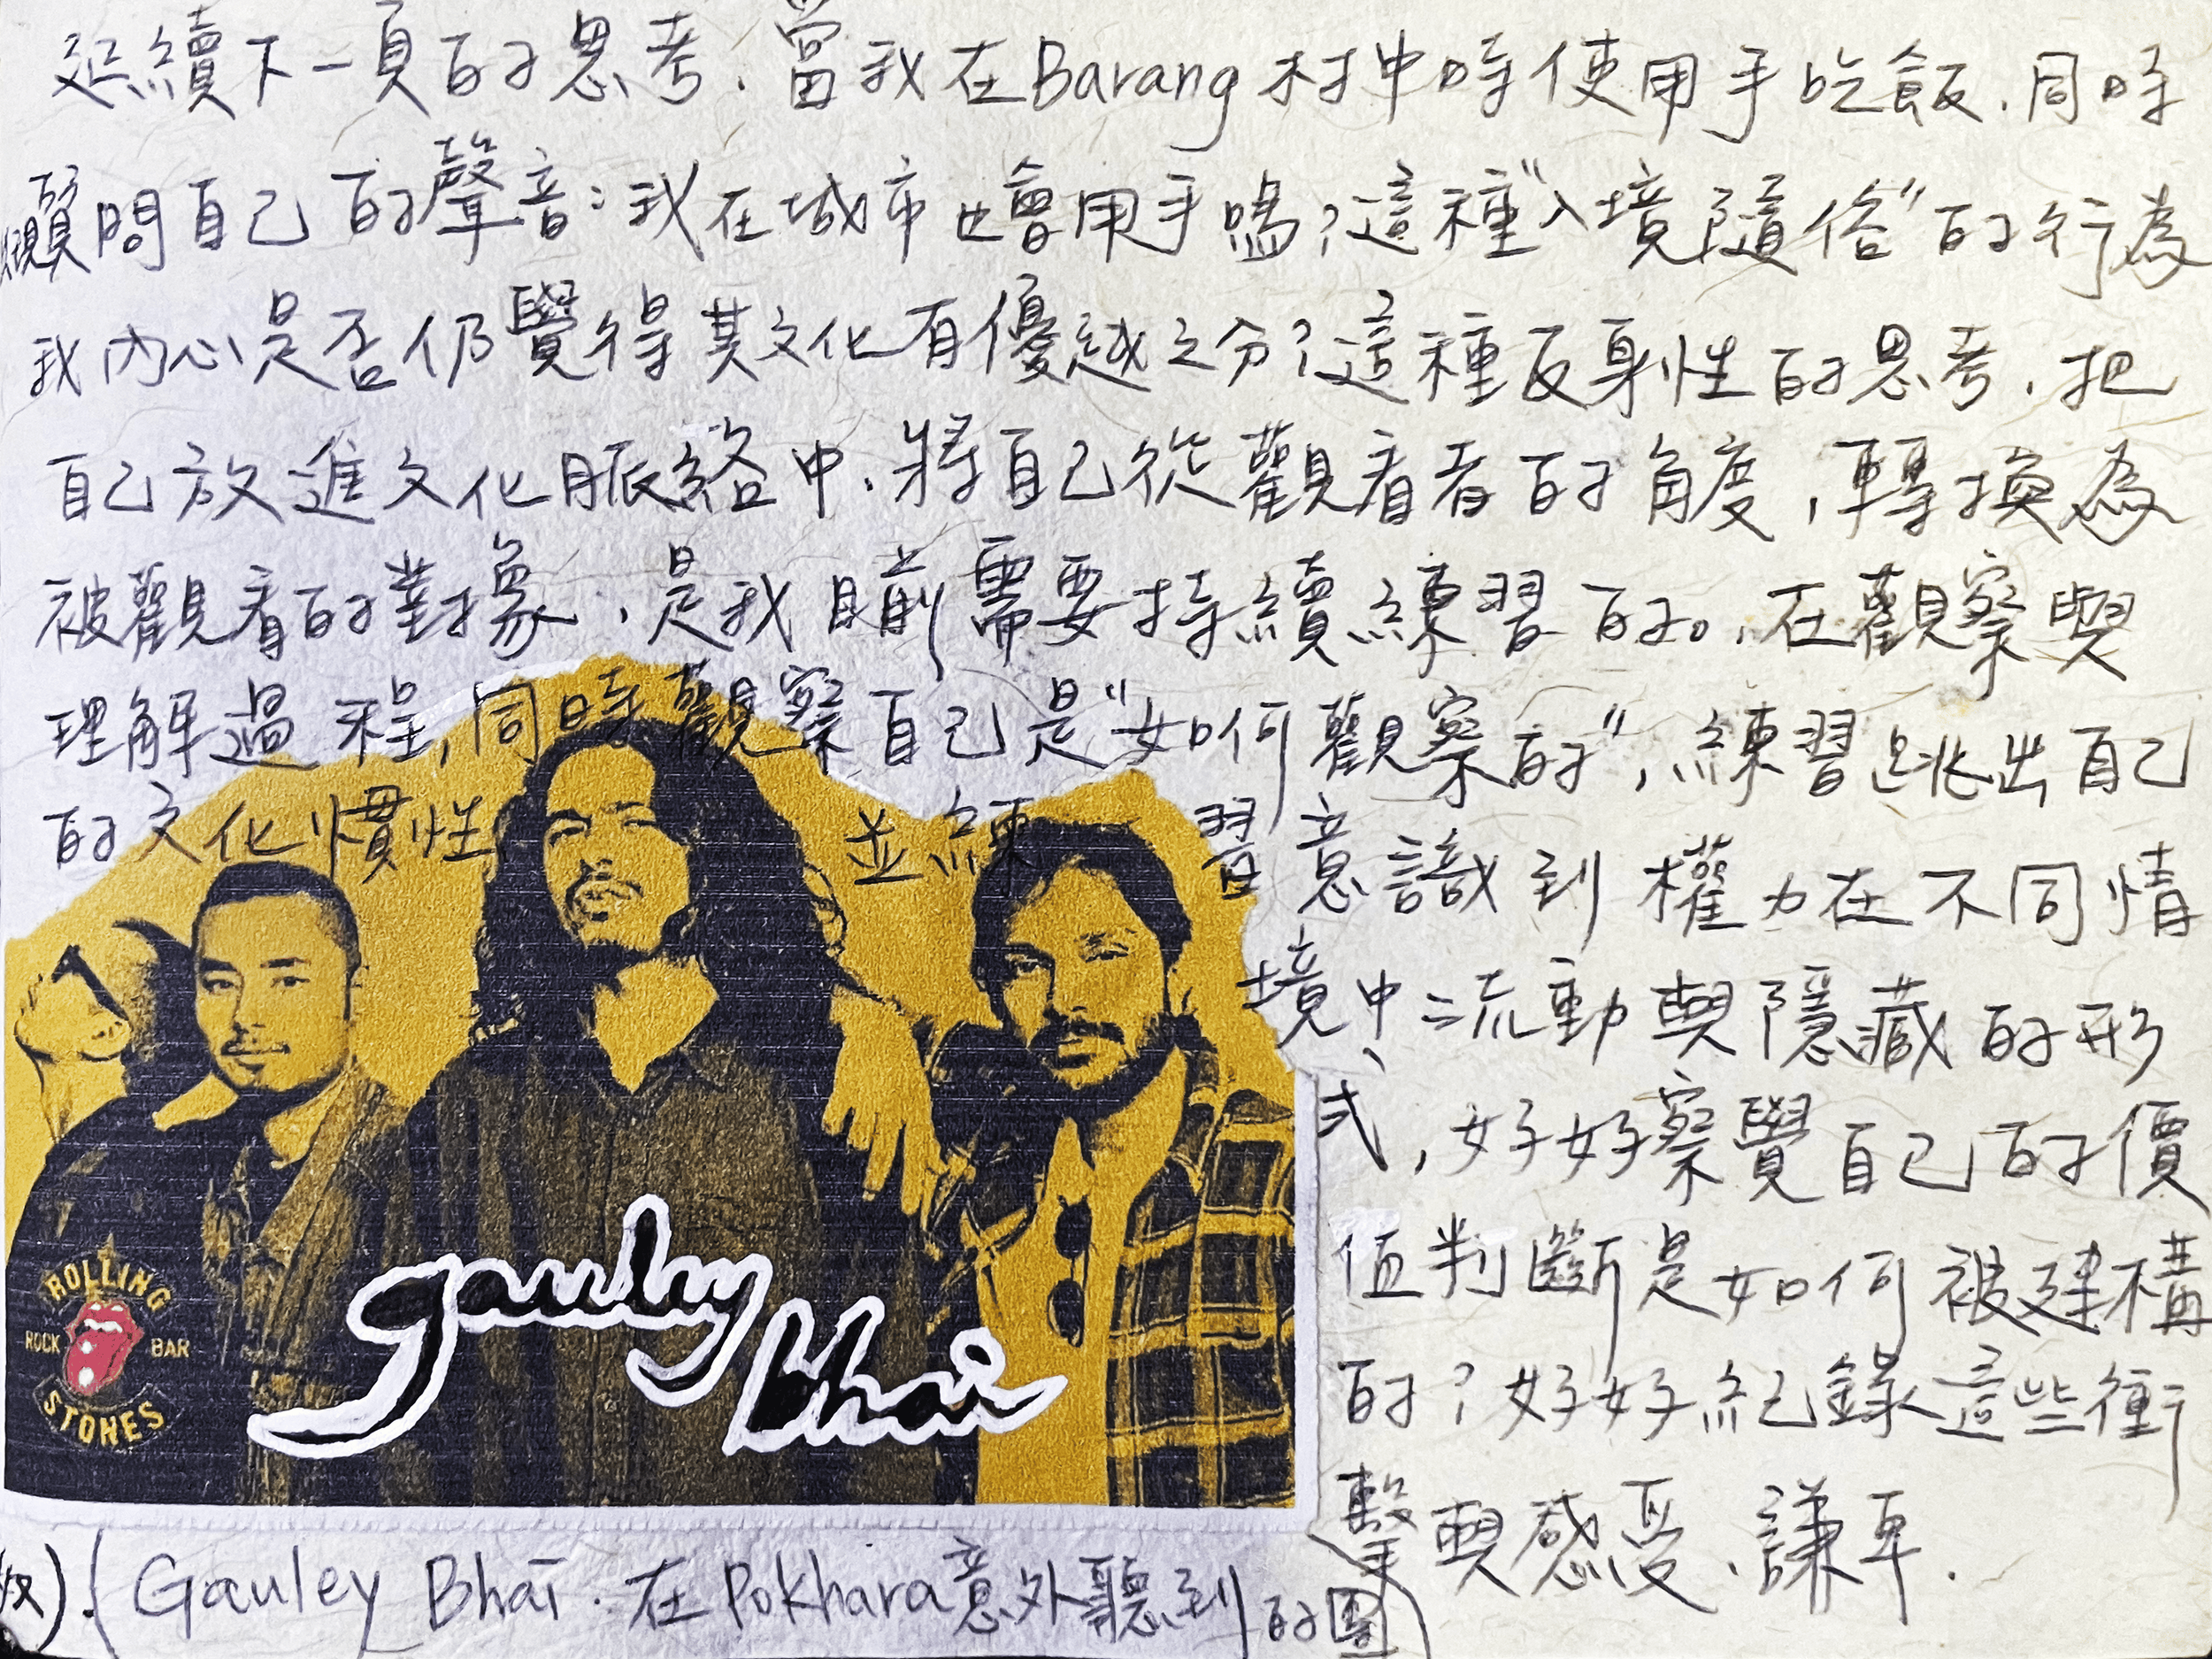 延續下一頁的思考、當我在Barang村中時使用手吃飯、同時
問自己的聲音：我在城市也會用手嗎？這種"入境隨俗"的行為
我內心是否仍覺得其文化有優越之分？這種反身性的思考、把
自己放進文化脈絡中、將自己從觀看者的角度，轉換為
被觀看的對象、是我目前需要持續練習的。、在觀察與
理解過程，同時觀察自己是"如何觀察的"，練習跳出自己
的文化慣性 並練習意識到權力在不同情
境中流動與隱藏的形
式，好好察覺自己的價
值判斷是如何被建構
的？好好紀錄這些衝
擊與感受、謙卑.
ROLLING
ROCK BAR
STONES
gauley
bhai
(Gauley Bhai. 在Pokhara意外聽到的團)